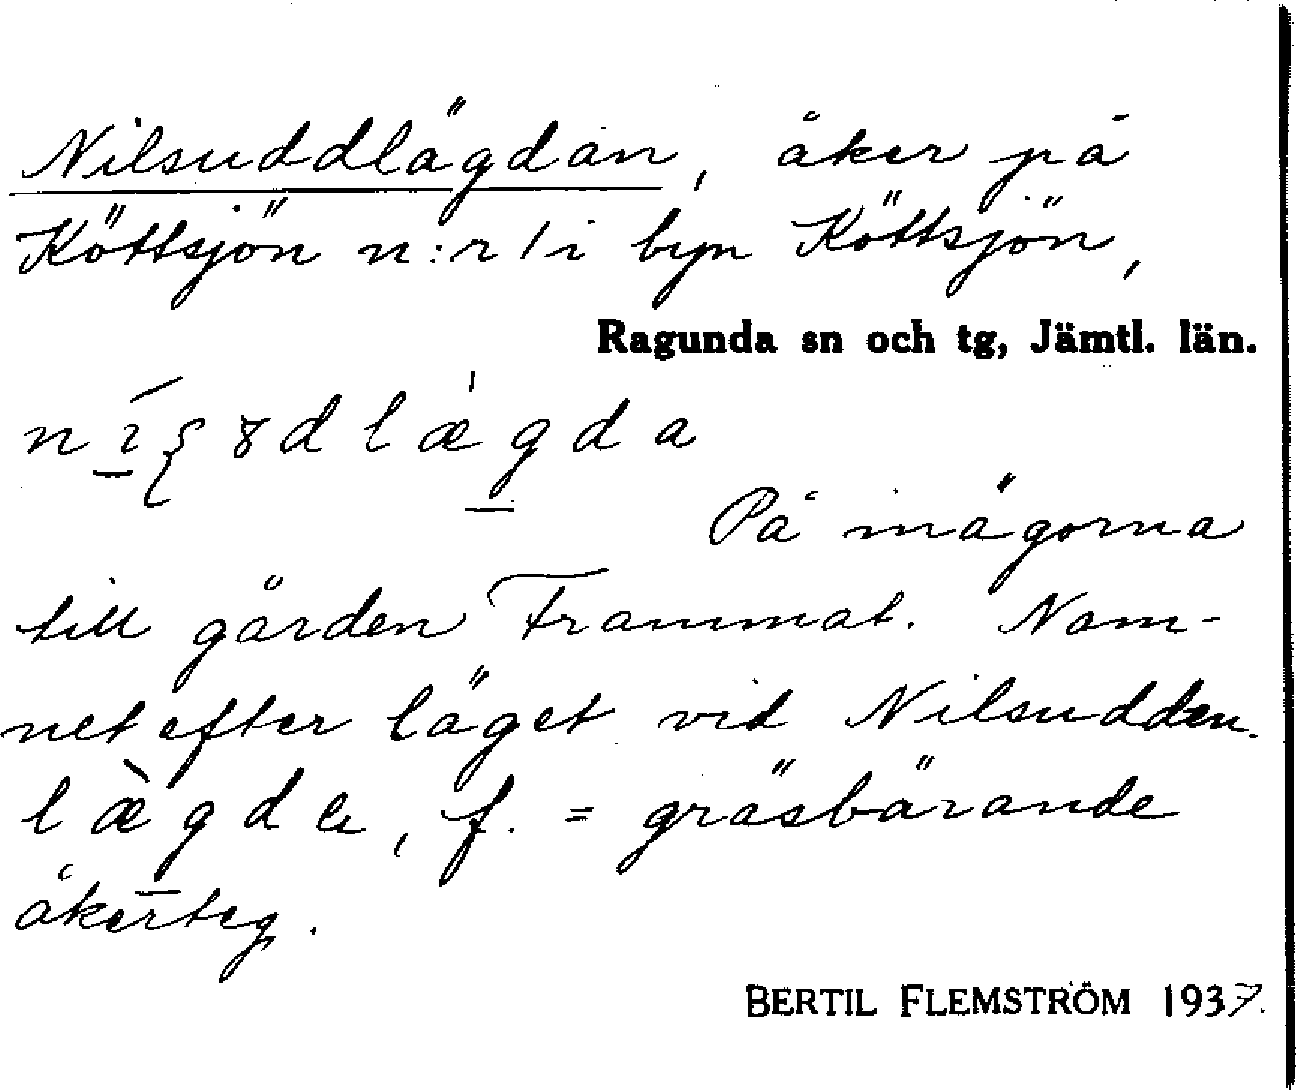 Nilsuddlägdan, åker på
Köttsjön n:r 1 i byn Köttsjön,
Ragunda sn och tg, Jämtl. län.
På inägorna
till gården Frammat. Nam-
net efter läget vid Nilsudden.
læ̀gda, f. = gräsbärande
åkerteg.
BERTIL FLEMSTRÖM 1937.